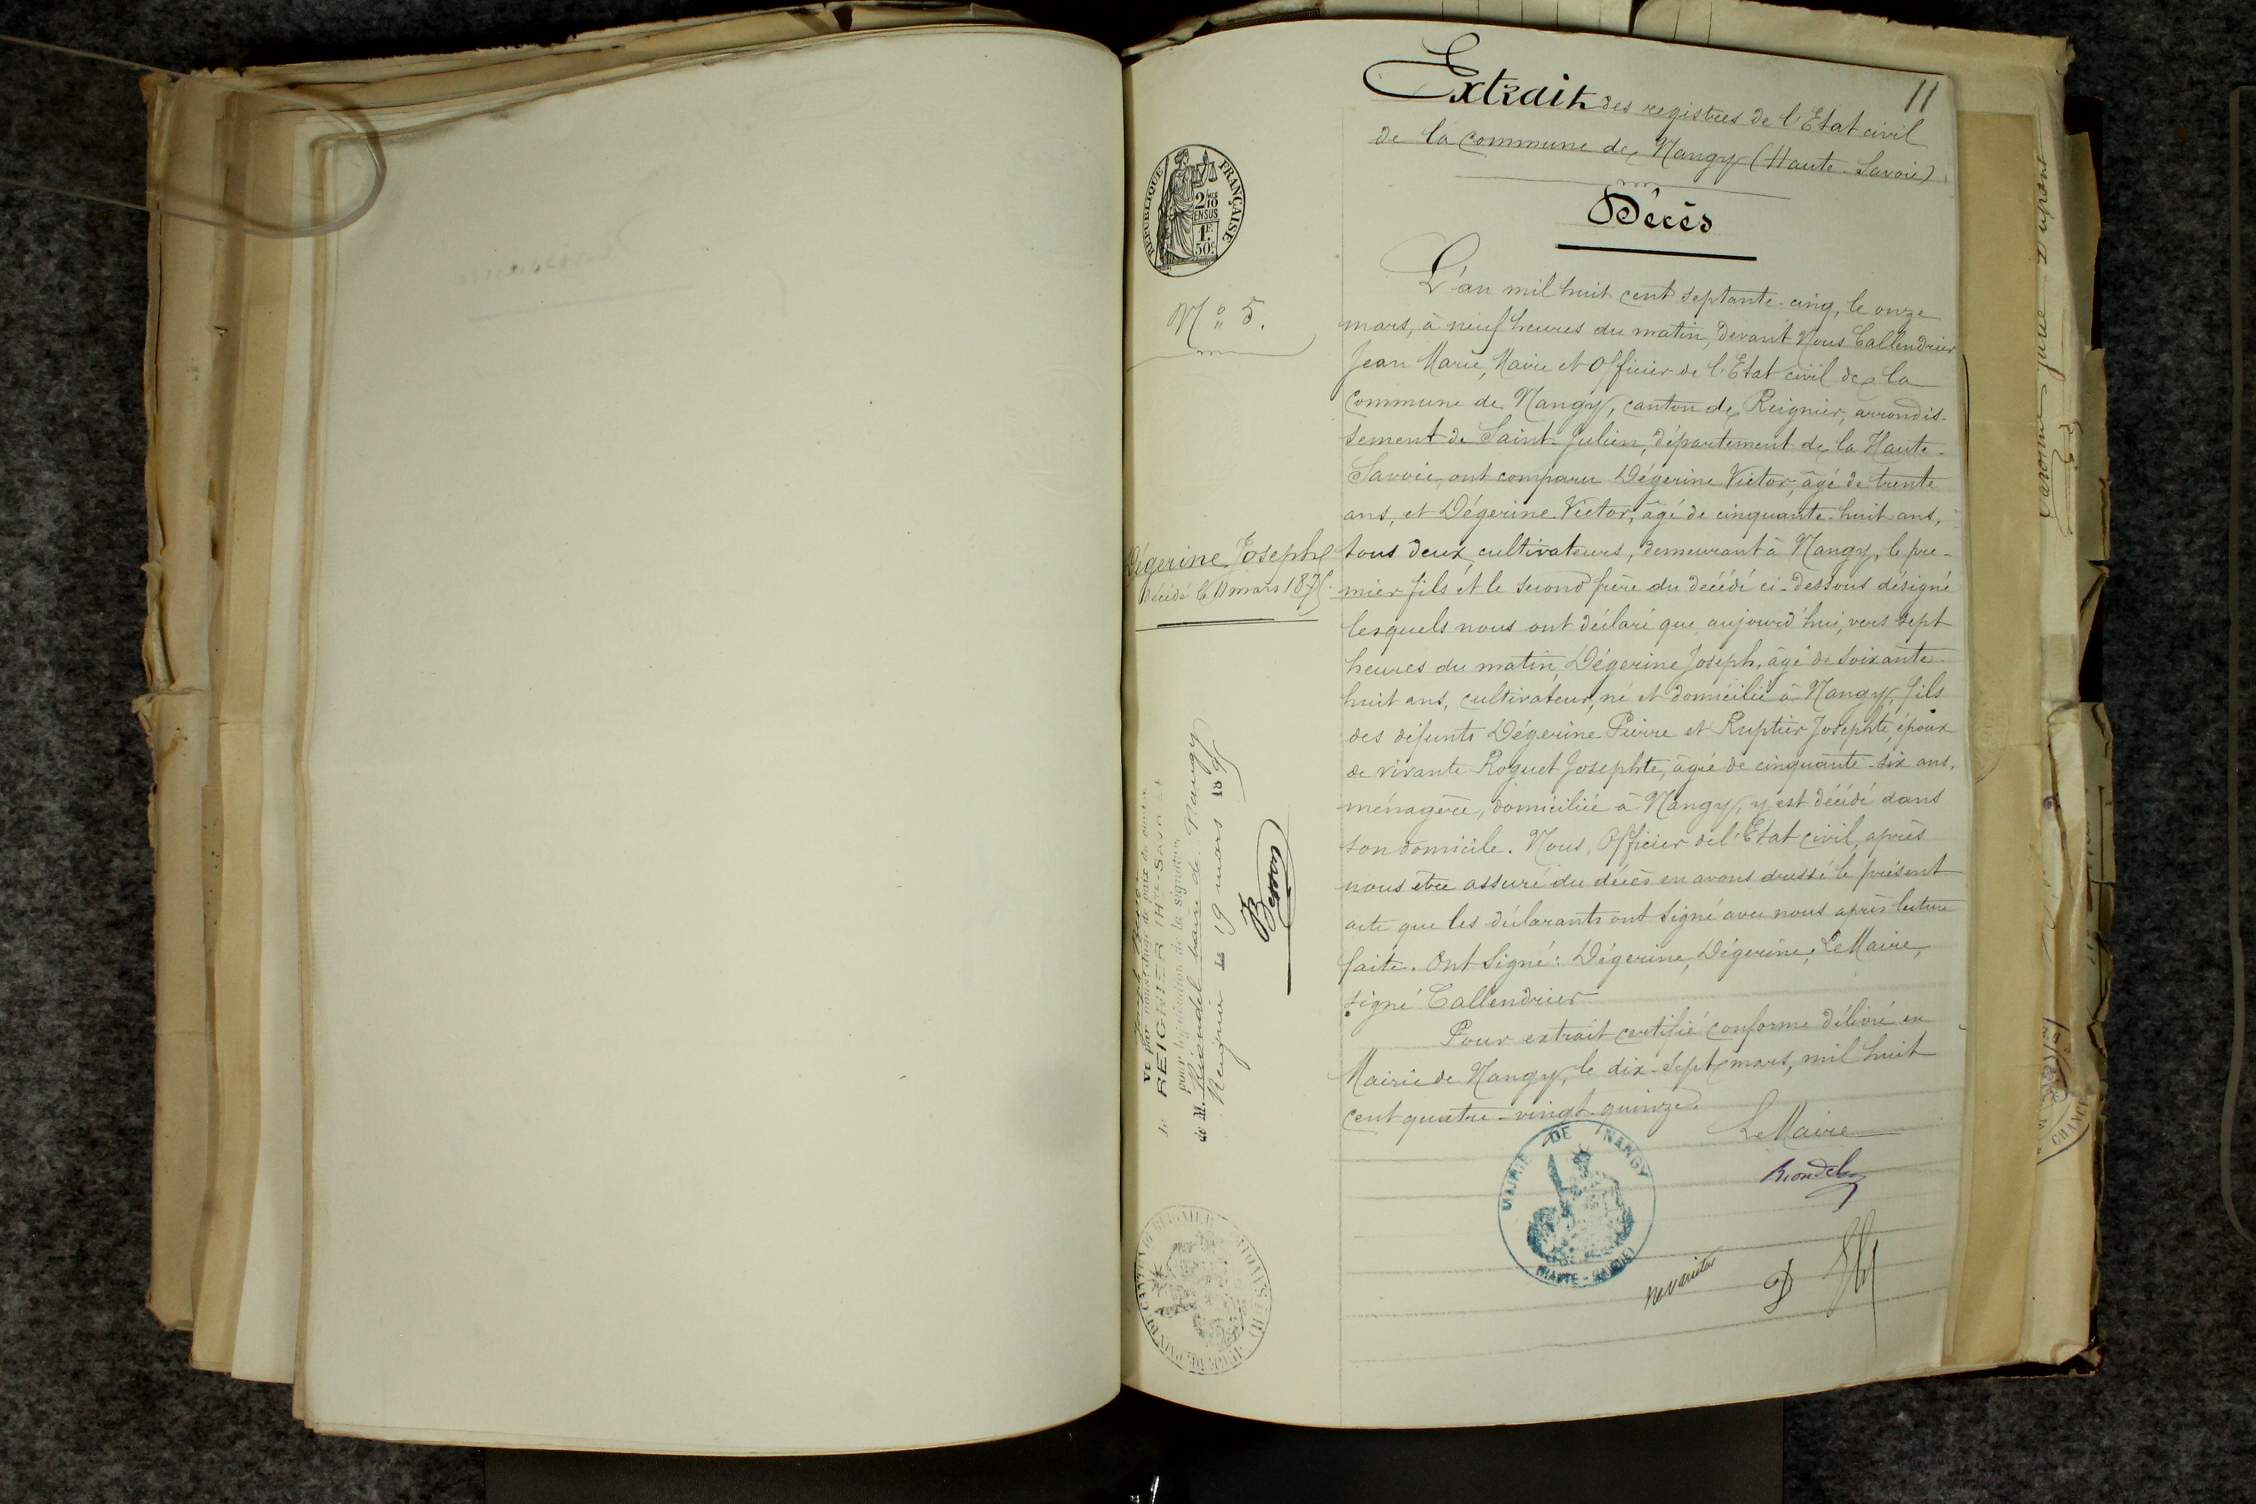 11
Extrait des registres de l'Etat civil
de la commune de Nangy (Haute-Savoie)
Décès
RÉPUBLIQUE FRANÇAISE
2/10
EN SUS
1F
50c
N° 5.
Dégerine Joseph
décédé le 11 mars 1875.
L'an mil huit cent septante-cinq, le onze
mars, à neuf heures du matin, devant Nous Callendrier
Jean Marie, Maire et Officier de l'Etat civil de la
Commune de Nangy, canton de Reignier, arrondis-
sement de Saint-Julien, département de la Haute-
Savoie, ont comparu Dégerine Victor, âgé de trente
ans, et Dégerine Victor, âgé de cinquante-huit ans,
tous deux cultivateurs, demeurant à Nangy, le pre-
mier fils et le second frère du décédé ci-dessous désigné
lesquels nous ont déclaré que aujourd'hui, vers sept
heures du matin, Dégerine Joseph, âgé de soixante-
huit ans, cultivateur, né et domicilié à Nangy, fils
des défunts Dégerine Pierre et Ruptier Josephte, époux
de vivante Roguet Josephte, âgée de cinquante-six ans,
ménagère, domiciliée à Nangy, y est décédé dans
son domicile. Nous, Officier de l'Etat civil, après
nous être assuré du décès en avons dressé le présent
acte que les déclarants ont signé avec nous après lecture
faite. Ont signé: Dégerine, Dégerine, Le Maire,
signé Callendrier
Pour extrait certifié conforme délivré en
Mairie de Nangy, le dix-sept mars, mil huit
cent quatre-vingt-quinze.
Le Maire
Riondel
MAIRIE DE NANGY
(HAUTE-SAVOIE)
ne varietur
Vu par nous Juge de paix du canton
de REIGNIER (Hte-SAVOIE)
pour légalisation de la signature
de M. Riondel maire de Nangy
Reignier le 19 mars 1895
JUSTICE DE PAIX DU CANTON DE REIGNIER